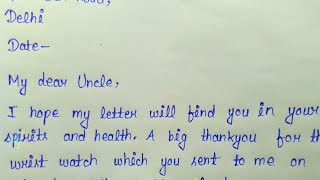 Delhi
Date-
My dear Uncle,
I hope my letter will find you in your
spirits and health. A big thankyou for th
wrist watch which you sent to me on